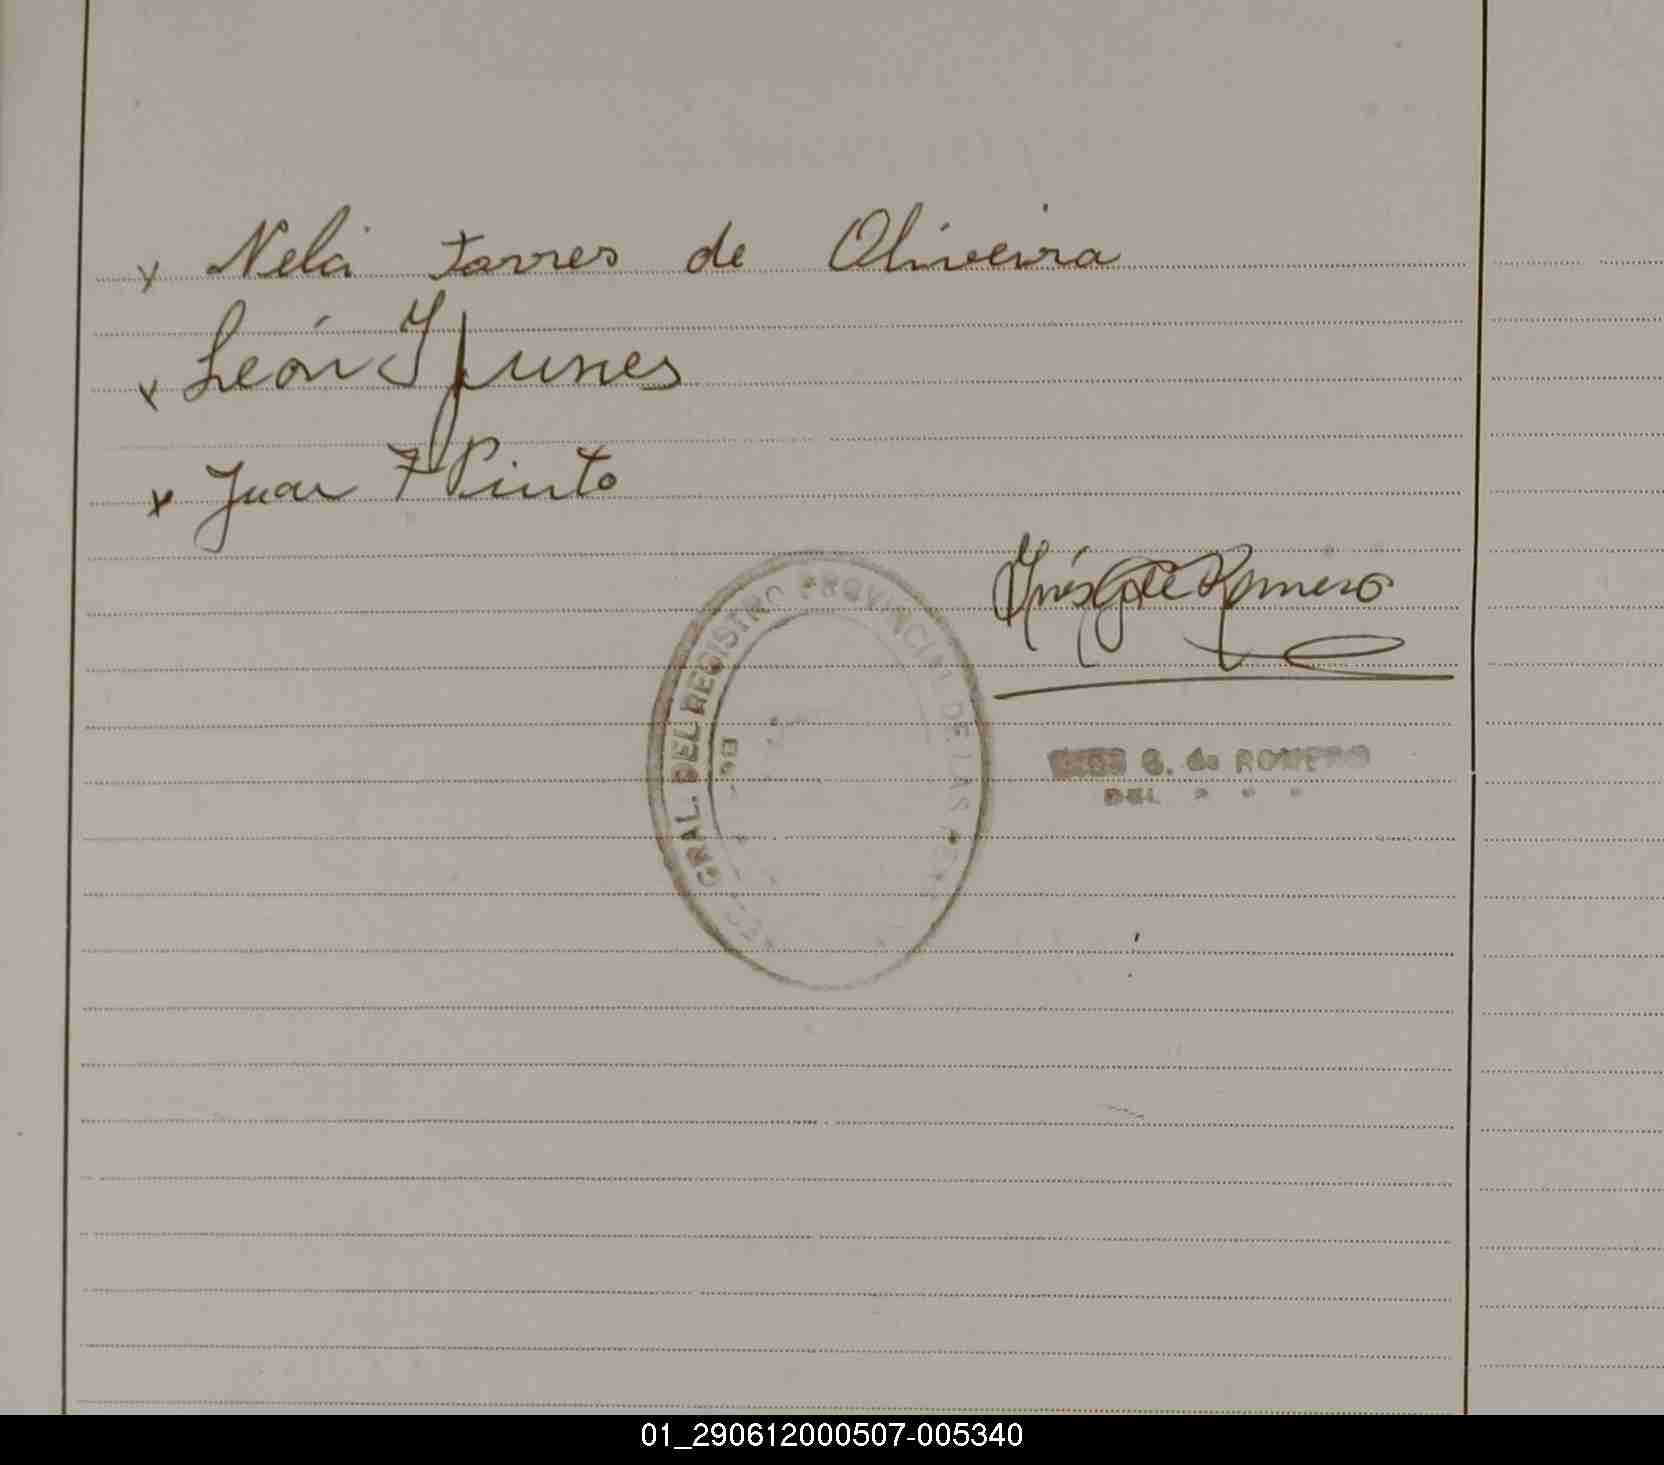 x Nela torres de Oliveira
x León Ypunes
x Juan F Pinto
Inés G de Romero
GRAL. DEL REGISTRO PROVINCIAL DE LAS
G. de ROMERO
DEL
01_290612000507-005340